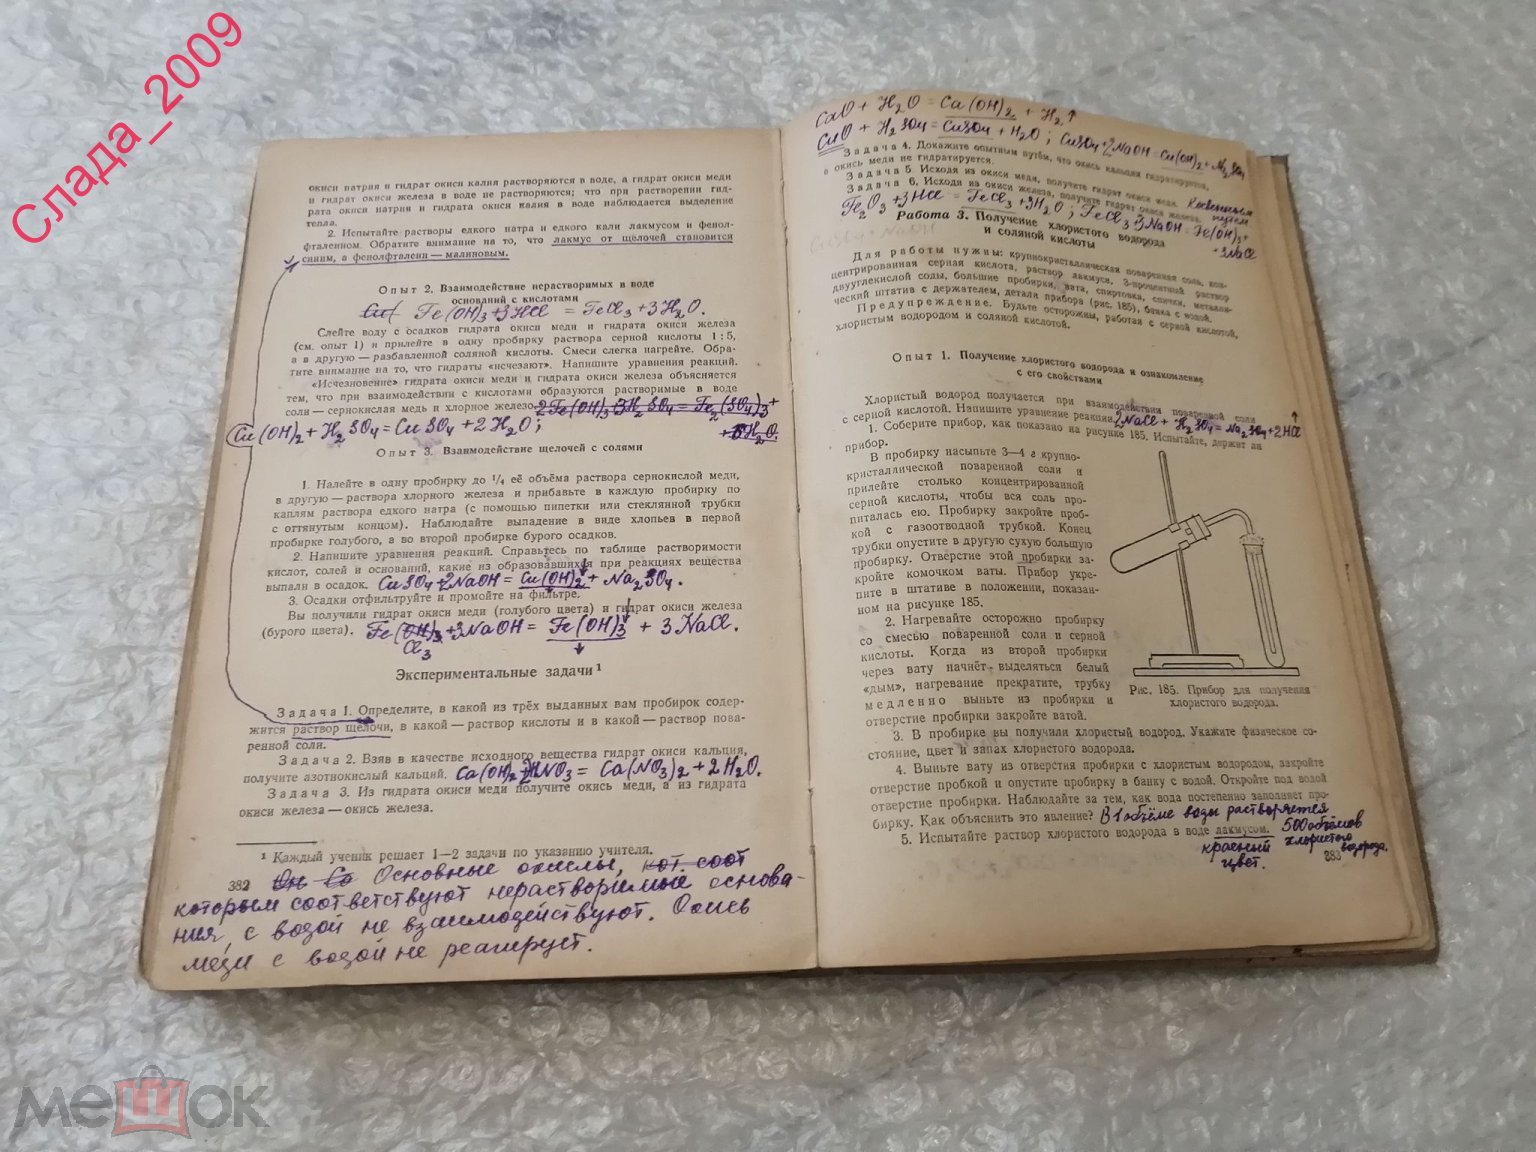 Слада_2009
окиси натрия и гидрат окиси калия растворяются в воде, а гидрат окиси меди
и гидрат окиси железа в воде не растворяются; что при растворении гид-
рата окиси натрия и гидрата окиси калия в воде наблюдается выделение
тепла.
2. Испытайте растворы едкого натра и едкого кали лакмусом и фенол-
фталеином. Обратите внимание на то, что лакмус от щёлочей становится
синим, а фенолфталеин — малиновым.
Опыт 2. Взаимодействие нерастворимых в воде
оснований с кислотами
Fe(OH)3 + 3HCl = FeCl3 + 3H2O.
Слейте воду с осадков гидрата окиси меди и гидрата окиси железа
(см. опыт 1) и прилейте в одну пробирку раствора серной кислоты 1 : 5,
а в другую — разбавленной соляной кислоты. Смеси слегка нагрейте. Обра-
тите внимание на то, что гидраты «исчезают». Напишите уравнения реакций.
«Исчезновение» гидрата окиси меди и гидрата окиси железа объясняется
тем, что при взаимодействии с кислотами образуются растворимые в воде
соли — сернокислая медь и хлорное железо. 2Fe(OH)3 3H2SO4 = Fe2(SO4)3 +
+ 6H2O.
Cu(OH)2 + H2SO4 = CuSO4 + 2H2O;
Опыт 3. Взаимодействие щелочей с солями
1. Налейте в одну пробирку до 1/4 её объёма раствора сернокислой меди,
в другую — раствора хлорного железа и прибавьте в каждую пробирку по
каплям раствора едкого натра (с помощью пипетки или стеклянной трубки
с оттянутым концом). Наблюдайте выпадение в виде хлопьев в первой
пробирке голубого, а во второй пробирке бурого осадков.
2. Напишите уравнения реакций. Справьтесь по таблице растворимости
кислот, солей и оснований, какие из образовавшихся при реакциях вещества
выпали в осадок. CuSO4 + 2NaOH = Cu(OH)2 ↓ + Na2SO4.
3. Осадки отфильтруйте и промойте на фильтре.
Вы получили гидрат окиси меди (голубого цвета) и гидрат окиси железа
(бурого цвета). Fe(OH)3 + 3NaOH = Fe(OH)3 ↓ + 3NaCl.
Cl3
Экспериментальные задачи 1
Задача 1. Определите, в какой из трёх выданных вам пробирок содер-
жится раствор щёлочи, в какой — раствор кислоты и в какой — раствор пова-
ренной соли.
Задача 2. Взяв в качестве исходного вещества гидрат окиси кальция,
получите азотнокислый кальций. Ca(OH)2 + 2HNO3 = Ca(NO3)2 + 2H2O.
Задача 3. Из гидрата окиси меди получите окись меди, а из гидрата
окиси железа — окись железа.
1 Каждый ученик решает 1—2 задачи по указанию учителя.
382 Основные окислы, кот. соот
которым соответствуют нерастворимые основа-
ния, с водой не взаимодействуют. Окись
меди с водой не реагирует.
CaO + H2O = Ca(OH)2 + H2↑
CuO + H2SO4 = CuSO4 + H2O; CuSO4 + 2NaOH = Cu(OH)2 + Na2SO4
Задача 4. Докажите опытным путём, что окись кальция гидратируется,
а окись меди не гидратируется.
Задача 5. Исходя из окиси меди, получите гидрат окиси меди. Косвенным
Задача 6. Исходя из окиси железа, получите гидрат окиси железа. путем
Fe2O3 + 3HCl = FeCl3 + 3H2O; FeCl3 3NaOH = Fe(OH)3 +
+ 3NaCl
Работа 3. Получение хлористого водорода
и соляной кислоты
Для работы нужны: крупнокристаллическая поваренная соль, кон-
центрированная серная кислота, раствор лакмуса, 3-процентный раствор
двууглекислой соды, большие пробирки, вата, спиртовка, спички, металли-
ческий штатив с держателем, детали прибора (рис. 185), банка с водой.
Предупреждение. Будьте осторожны, работая с серной кислотой,
хлористым водородом и соляной кислотой.
Опыт 1. Получение хлористого водорода и ознакомление
с его свойствами
Хлористый водород получается при взаимодействии поваренной соли
с серной кислотой. Напишите уравнение реакции. 2NaCl + H2SO4 = Na2SO4 + 2HCl ↑
1. Соберите прибор, как показано на рисунке 185. Испытайте, держит ли
прибор.
В пробирку насыпьте 3—4 г крупно-
кристаллической поваренной соли и
прилейте столько концентрированной
серной кислоты, чтобы вся соль про-
питалась ею. Пробирку закройте проб-
кой с газоотводной трубкой. Конец
трубки опустите в другую сухую большую
пробирку. Отверстие этой пробирки за-
кройте комочком ваты. Прибор укре-
пите в штативе в положении, показан-
ном на рисунке 185.
2. Нагревайте осторожно пробирку
со смесью поваренной соли и серной
кислоты. Когда из второй пробирки
через вату начнёт выделяться белый
«дым», нагревание прекратите, трубку
медленно выньте из пробирки и
отверстие пробирки закройте ватой.
Рис. 185. Прибор для получения
хлористого водорода.
3. В пробирке вы получили хлористый водород. Укажите физическое со-
стояние, цвет и запах хлористого водорода.
4. Выньте вату из отверстия пробирки с хлористым водородом, закройте
отверстие пробкой и опустите пробирку в банку с водой. Откройте под водой
отверстие пробирки. Наблюдайте за тем, как вода постепенно заполняет про-
бирку. Как объяснить это явление? В 1 объёме воды растворяется
5. Испытайте раствор хлористого водорода в воде лакмусом. 500 объёмов
красный хлористого
цвет. водорода.
283
мешок